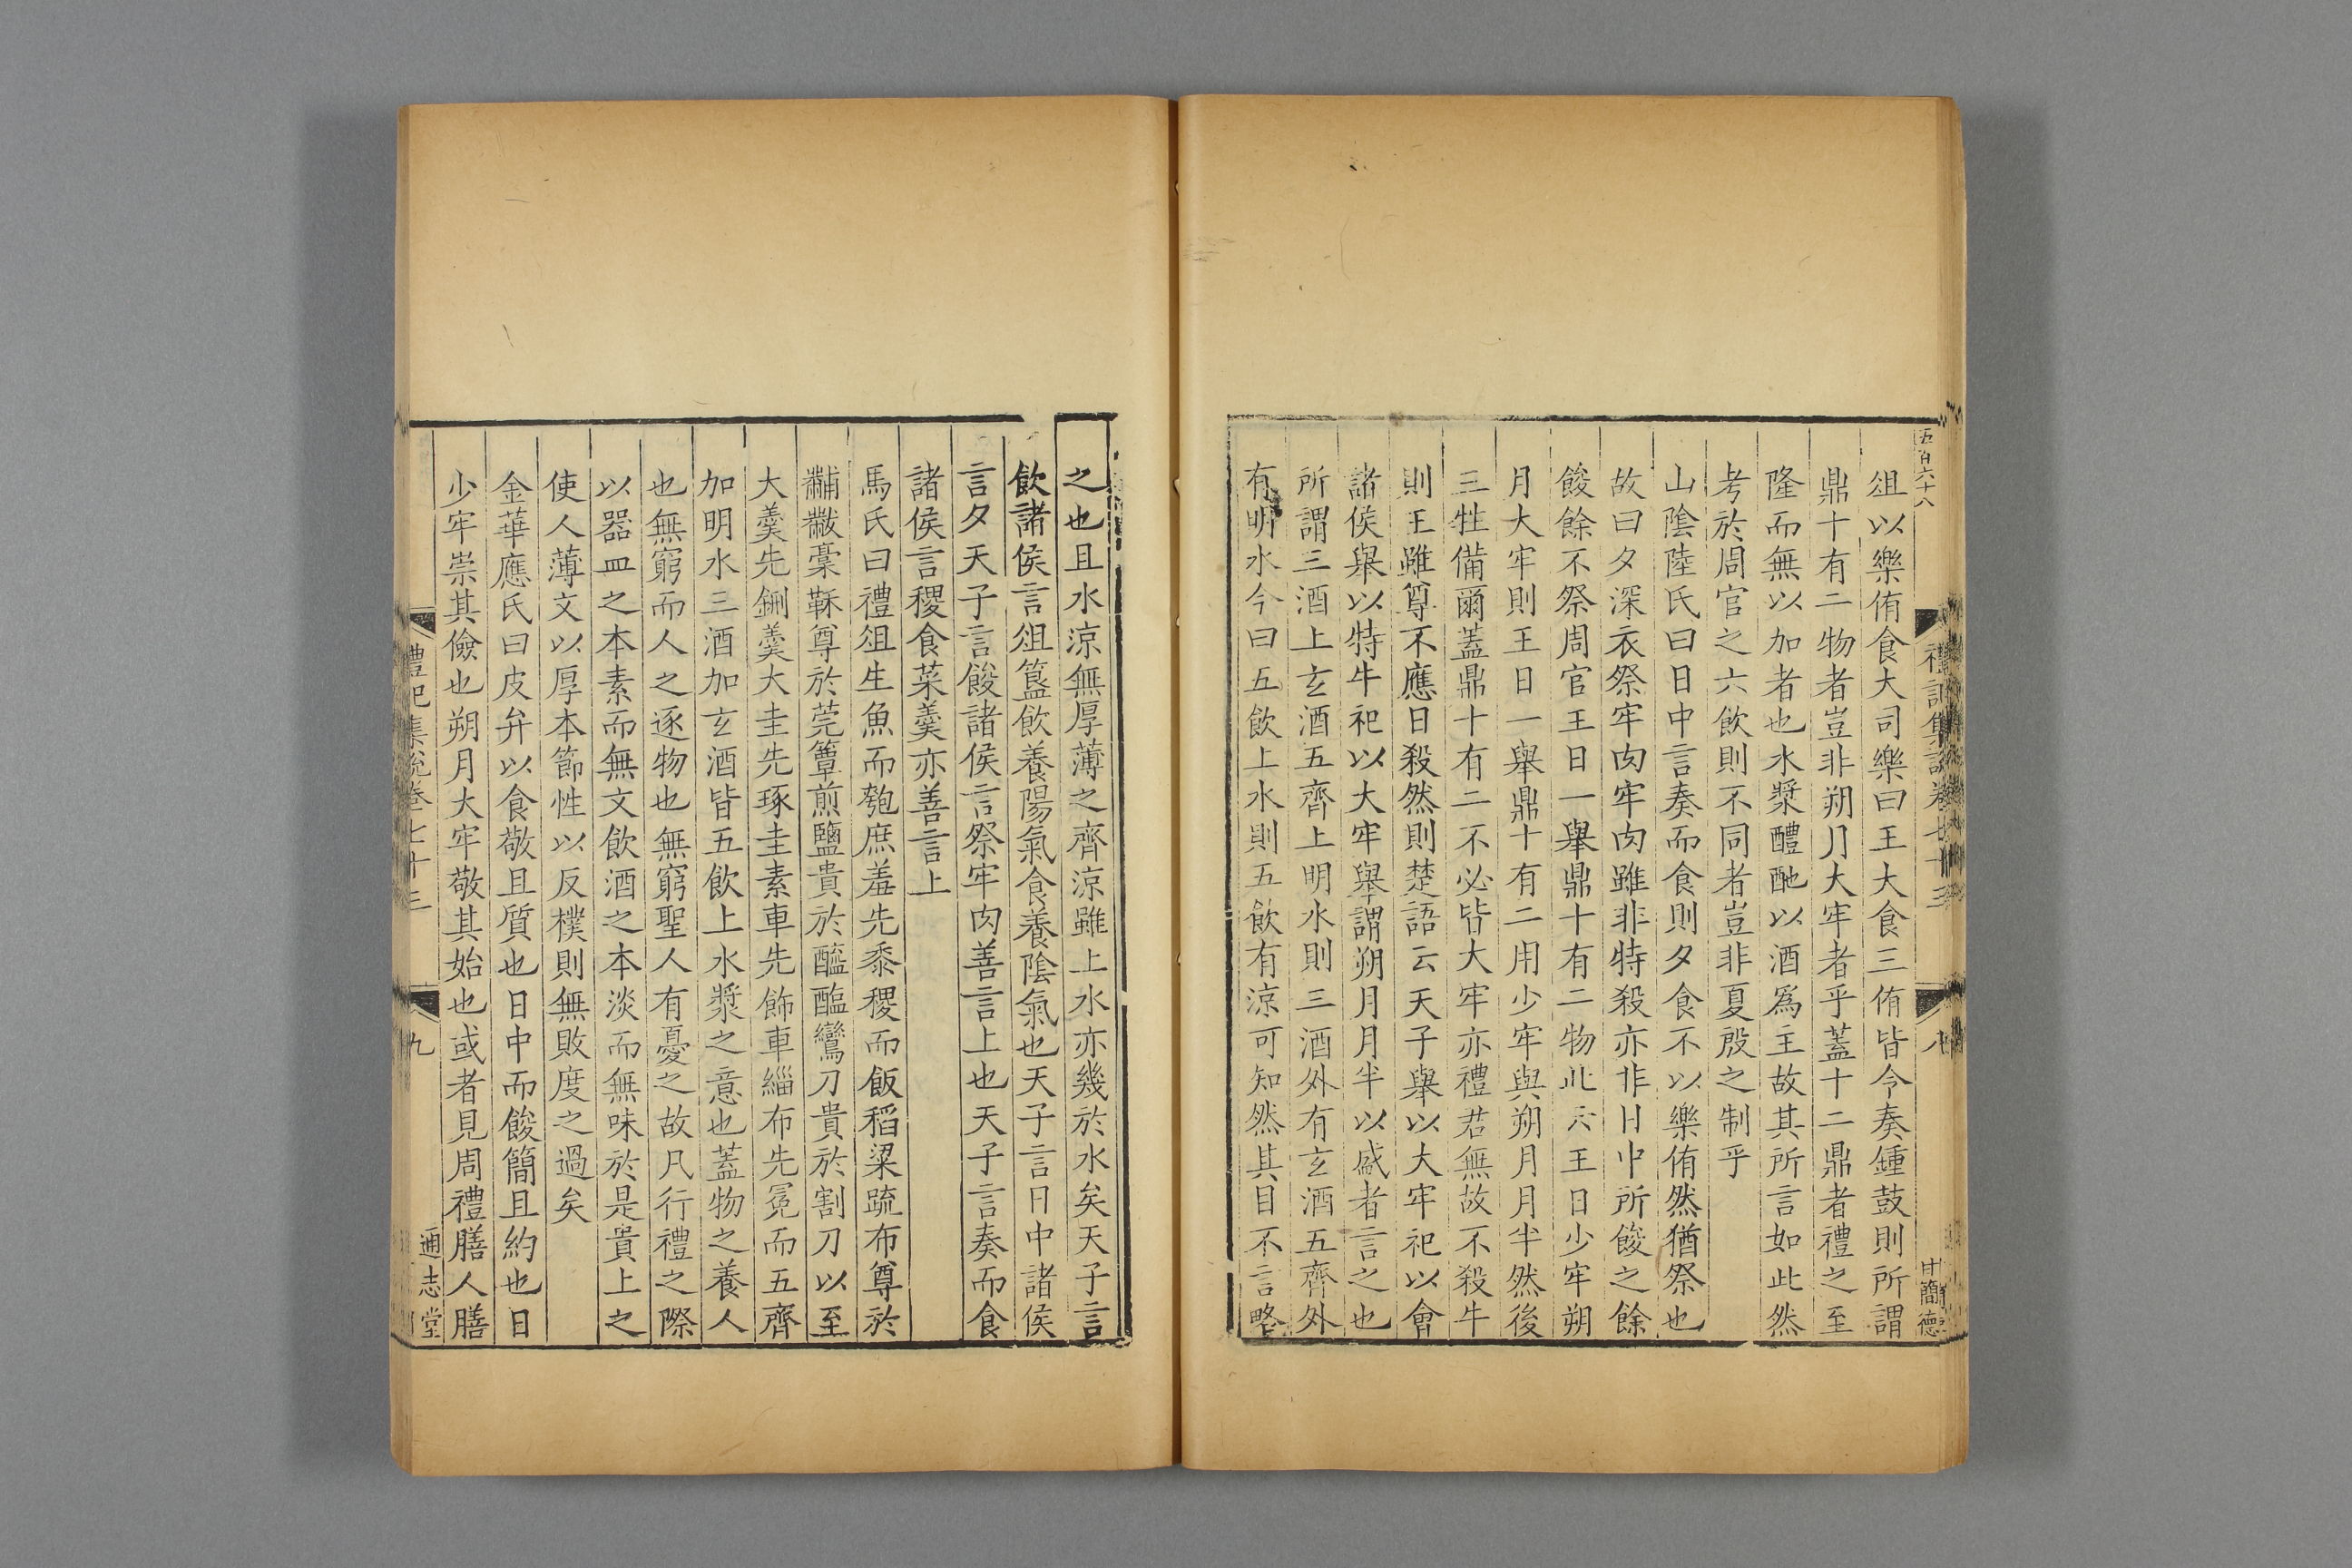 五百六十八
禮記集說卷七十三
八
甘簡德
俎以樂侑食大司樂曰王大食三侑皆令奏鍾鼓則所謂
鼎十有二物者豈非朔月大牢者乎蓋十二鼎者禮之至
隆而無以加者也水漿醴酏以酒爲主故其所言如此然
考於周官之六飲則不同者豈非夏殷之制乎
山陰陸氏曰日中言奏而食則夕食不以樂侑然猶祭也
故曰夕深衣祭牢肉牢肉雖非特殺亦非日中所餕之餘
餕餘不祭周官王日一舉鼎十有二物此云王日少牢朔
月大牢則王日一舉鼎十有二用少牢與朔月月半然後
三牲備爾蓋鼎十有二不必皆大牢亦禮君無故不殺牛
則王雖尊不應日殺然則楚語云天子舉以大牢祀以會
諸侯舉以特牛祀以大牢舉謂朔月月半以盛者言之也
所謂三酒上玄酒五齊上明水則三酒外有玄酒五齊外
有明水今曰五飲上水則五飲有涼可知然其目不言略
之也且水涼無厚薄之齊涼雖上水亦幾於水矣天子言
飲諸侯言俎簋飲養陽氣食養陰氣也天子言日中諸侯
言夕天子言餕諸侯言祭牢肉善言上也天子言奏而食
諸侯言稷食菜羹亦善言上
馬氏曰禮俎生魚而匏庶羞先黍稷而飯稻粱疏布尊於
黼黻稾鞂尊於莞簟煎鹽貴於醯醢鸞刀貴於割刀以至
大羹先鉶羹大圭先琢圭素車先飾車緇布先冕而五齊
加明水三酒加玄酒皆五飲上水漿之意也蓋物之養人
也無窮而人之逐物也無窮聖人有憂之故凡行禮之際
以器皿之本素而無文飲酒之本淡而無味於是貴上之
使人薄文以厚本節性以反樸則無敗度之過矣
金華應氏曰皮弁以食敬且質也日中而餕簡且約也日
少牢崇其儉也朔月大牢敬其始也或者見周禮膳人膳
禮記集說卷七十三
九
通志堂